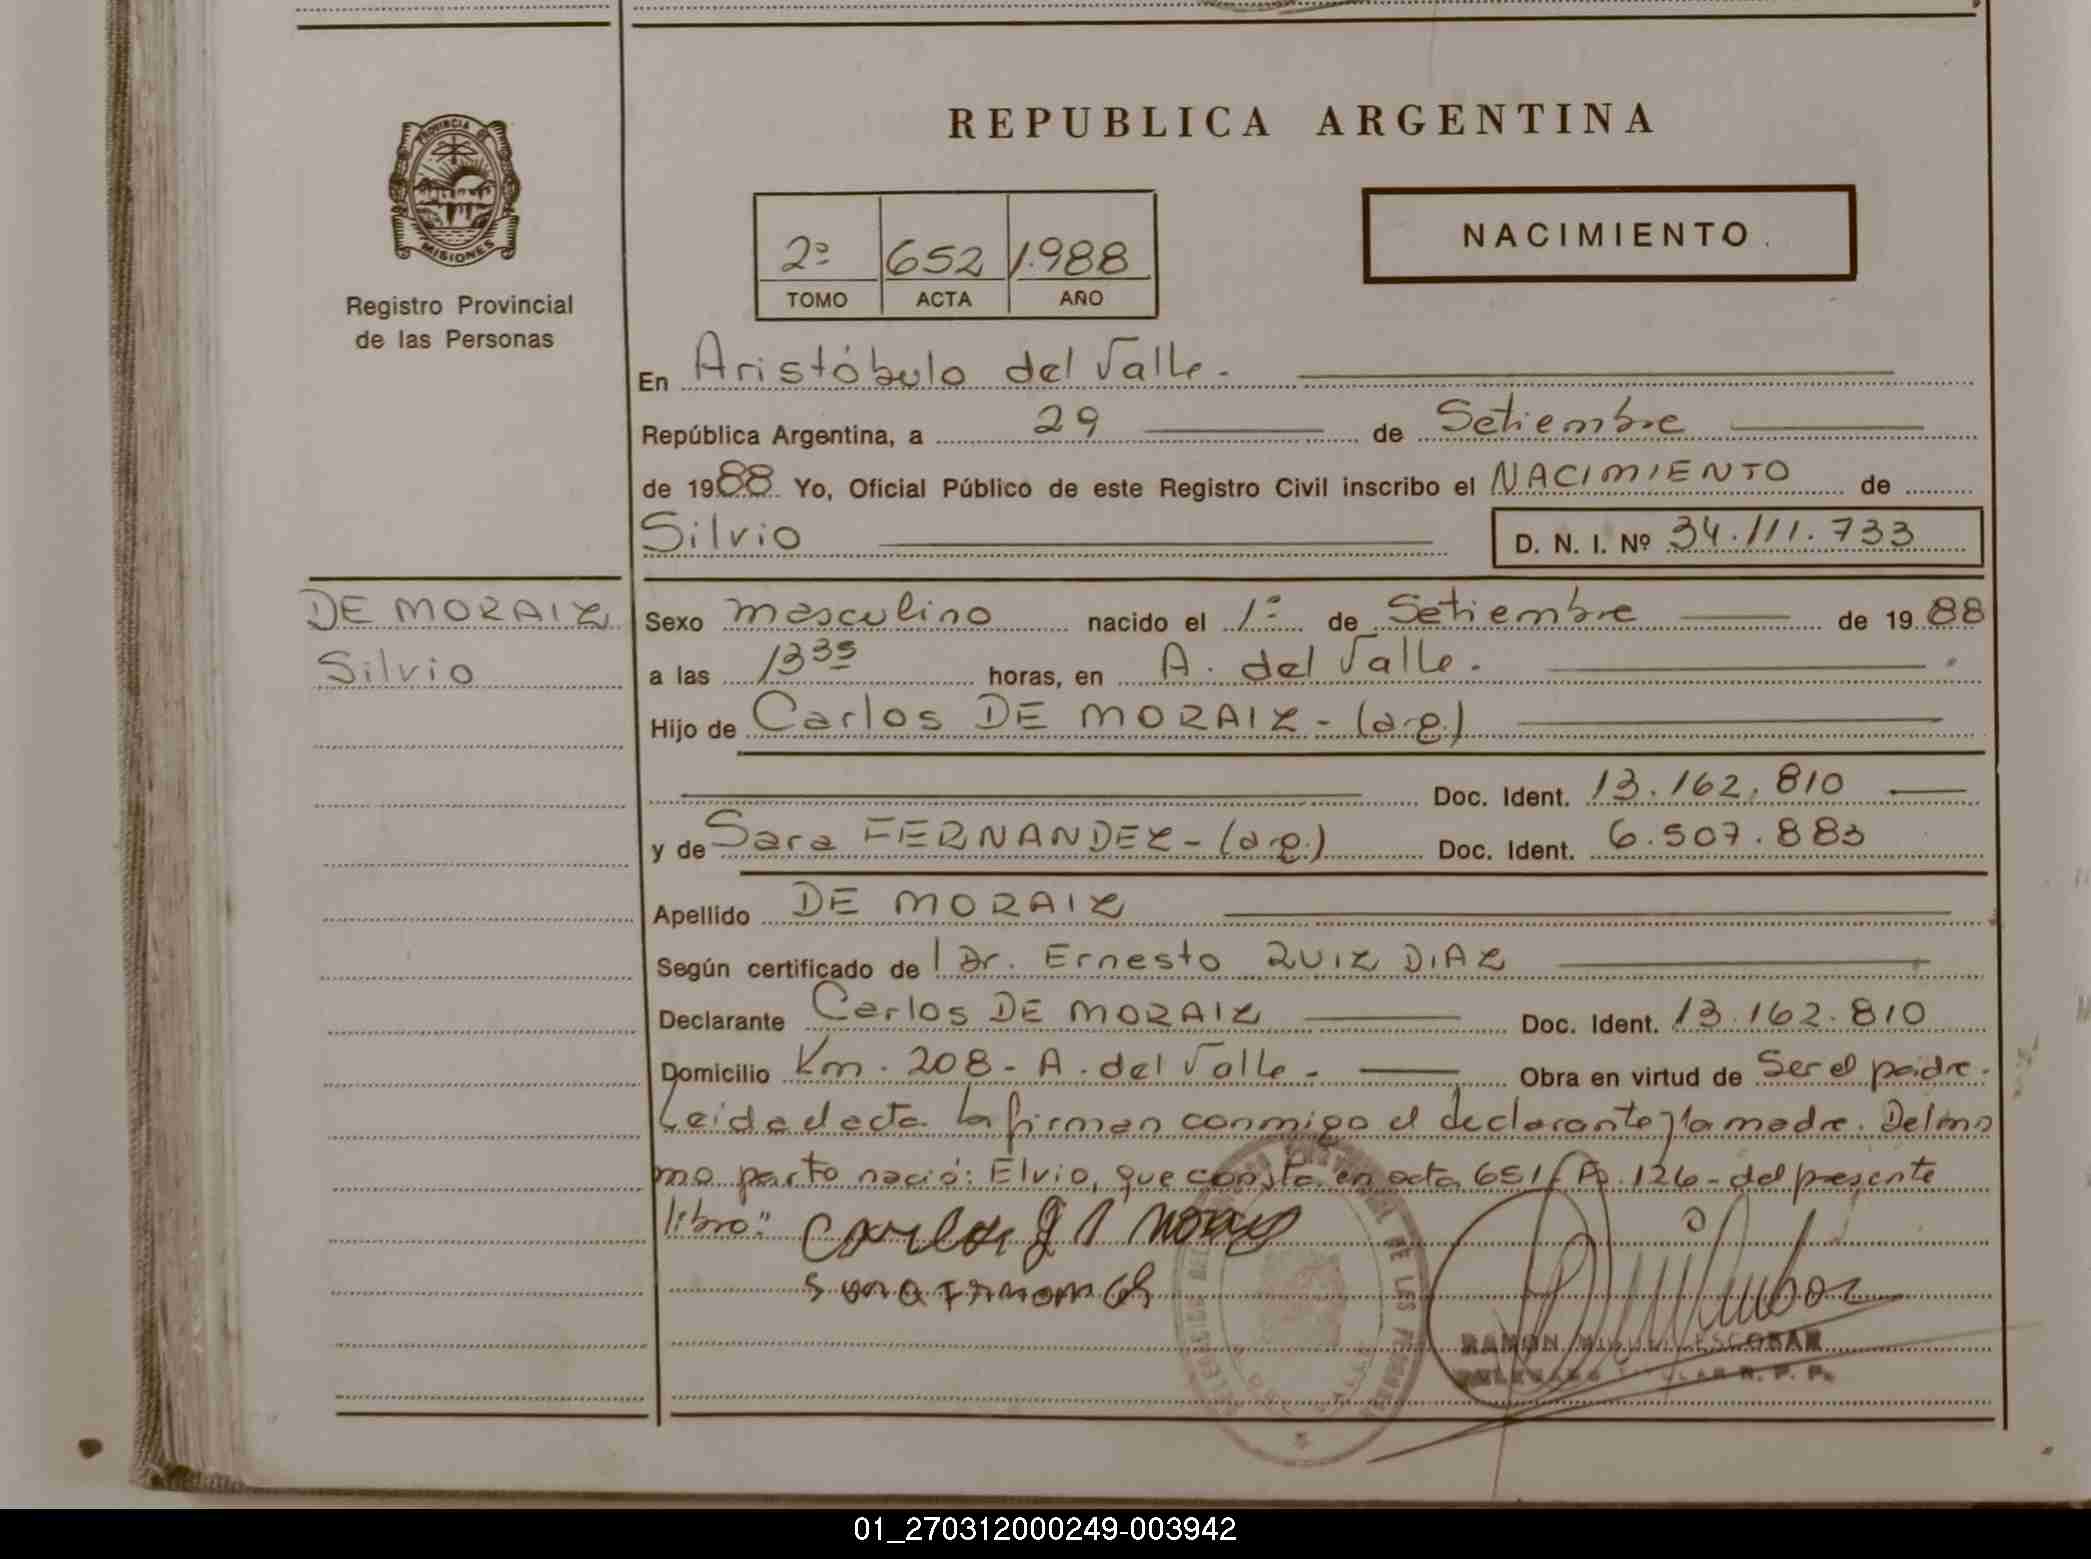 REPUBLICA ARGENTINA
PROVINCIA DE
MISIONES
Registro Provincial
de las Personas
2º 652 1.988
TOMO ACTA AÑO
NACIMIENTO
En Aristóbulo del Valle.
República Argentina, a 29 de Setiembre
de 1988 Yo, Oficial Público de este Registro Civil inscribo el NACIMIENTO de
Silvio D. N. I. Nº 34.111.733
DE MORAIZ
Silvio
Sexo masculino nacido el 1º de Setiembre de 1988
a las 13 35 horas, en A. del Valle.
Hijo de Carlos DE MORAIZ - (arg.)
Doc. Ident. 13.162.810
y de Sara FERNANDEZ - (arg.) Doc. Ident. 6.507.883
Apellido DE MORAIZ
Según certificado de Dr. Ernesto RUIZ DIAZ
Declarante Carlos DE MORAIZ Doc. Ident. 13.162.810
Domicilio Km. 208 - A. del Valle. - Obra en virtud de Ser el padre.
Leida el acta la firman conmigo el declarante y la madre. Del mis
mo parto nació: Elvio, que consta en acta 651 Fº 126 - del presente
libro"
RAMON MIGUEL ESCOBAR
DELEGADO TITULAR R. P. P.
01_270312000249-003942